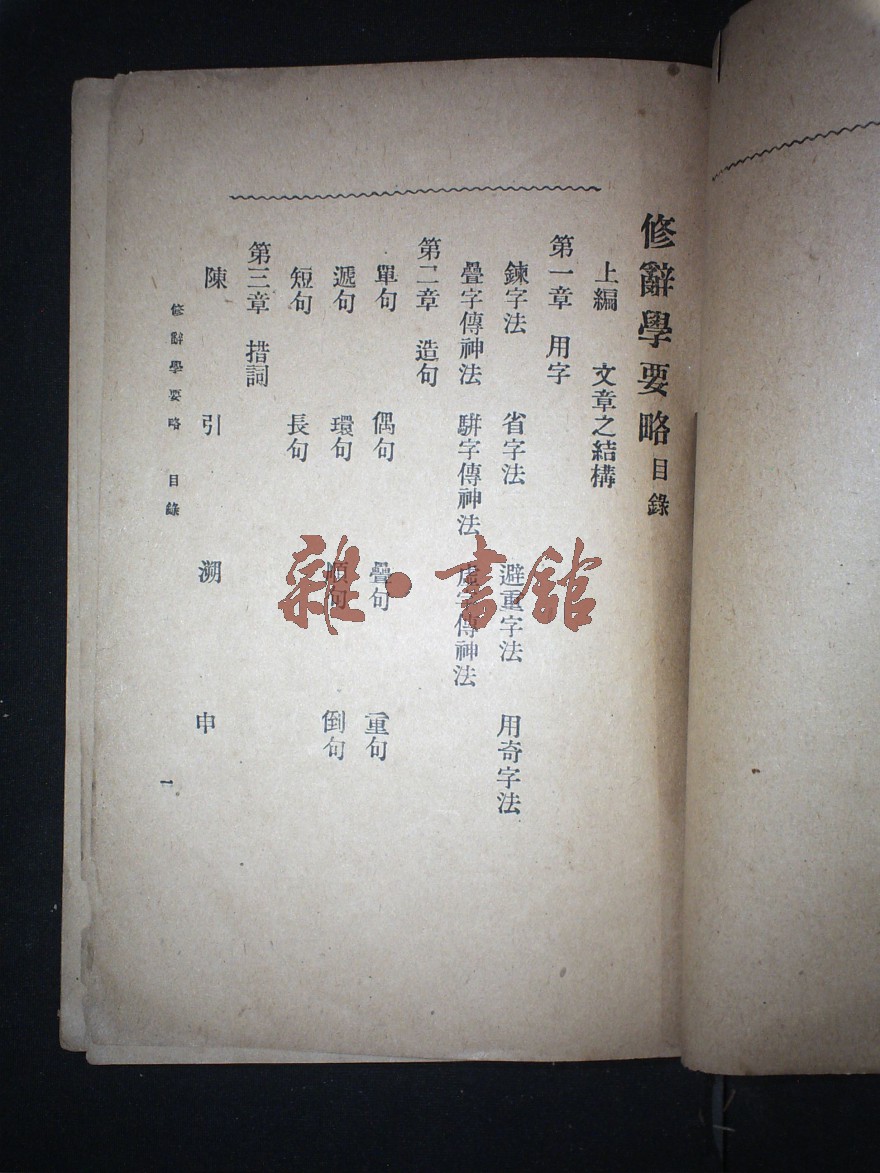 修辭學要略目錄
上編 文章之結構
第一章 用字
鍊字法 省字法 避重字法 用奇字法
疊字傳神法 駢字傳神法 虛字傳神法
第二章 造句
單句 偶句 疊句 重句
遞句 環句 順句 倒句
短句 長句
第三章 措詞
陳 引 溯 申
修辭學要略 目錄
一
雜·書館